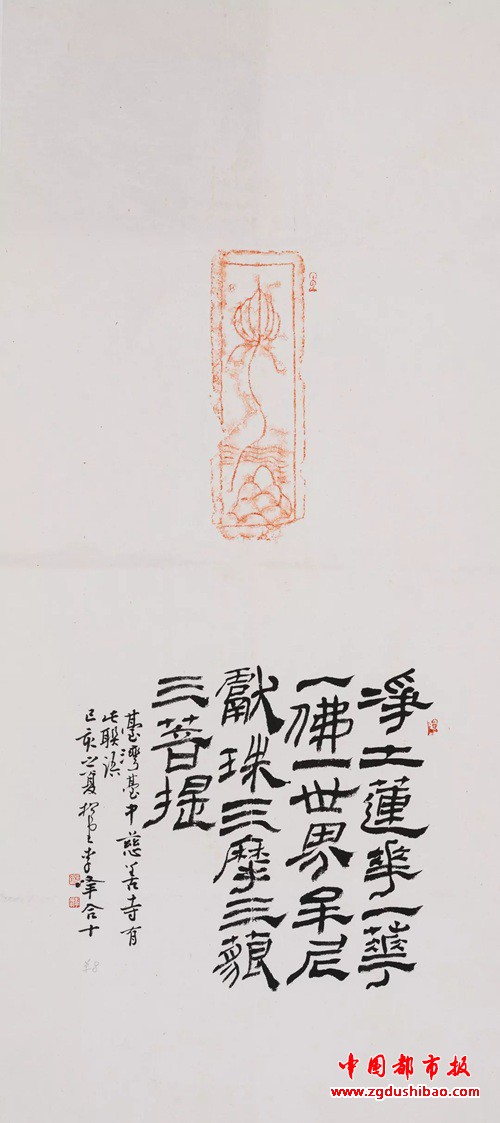 淨土蓮華一華
一佛一世界牟尼
獻珠三摩三藐
三菩提
臺灣臺中慈善寺有
此聯語
己亥之夏 李峰合十
58
中国都市报
www.zgdushibao.com